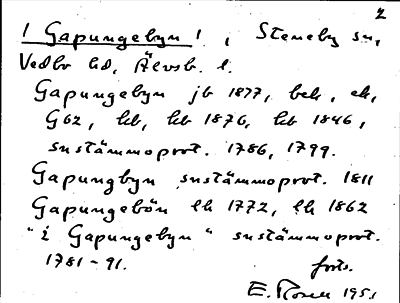 2
! Gapungebyn !, Steneby sn,
Vedbo hd, Älvsb. l.
Gapungebyn jb 1877, bek, ek,
G62, hb, hb 1876, hb 1846,
snstämmoprot. 1786, 1799.
Gapungbyn snstämmoprot. 1811
Gapungebön lk 1772, lk 1862
"i Gapungebyn" snstämmoprot.
1781-91.
forts.
E. 1951